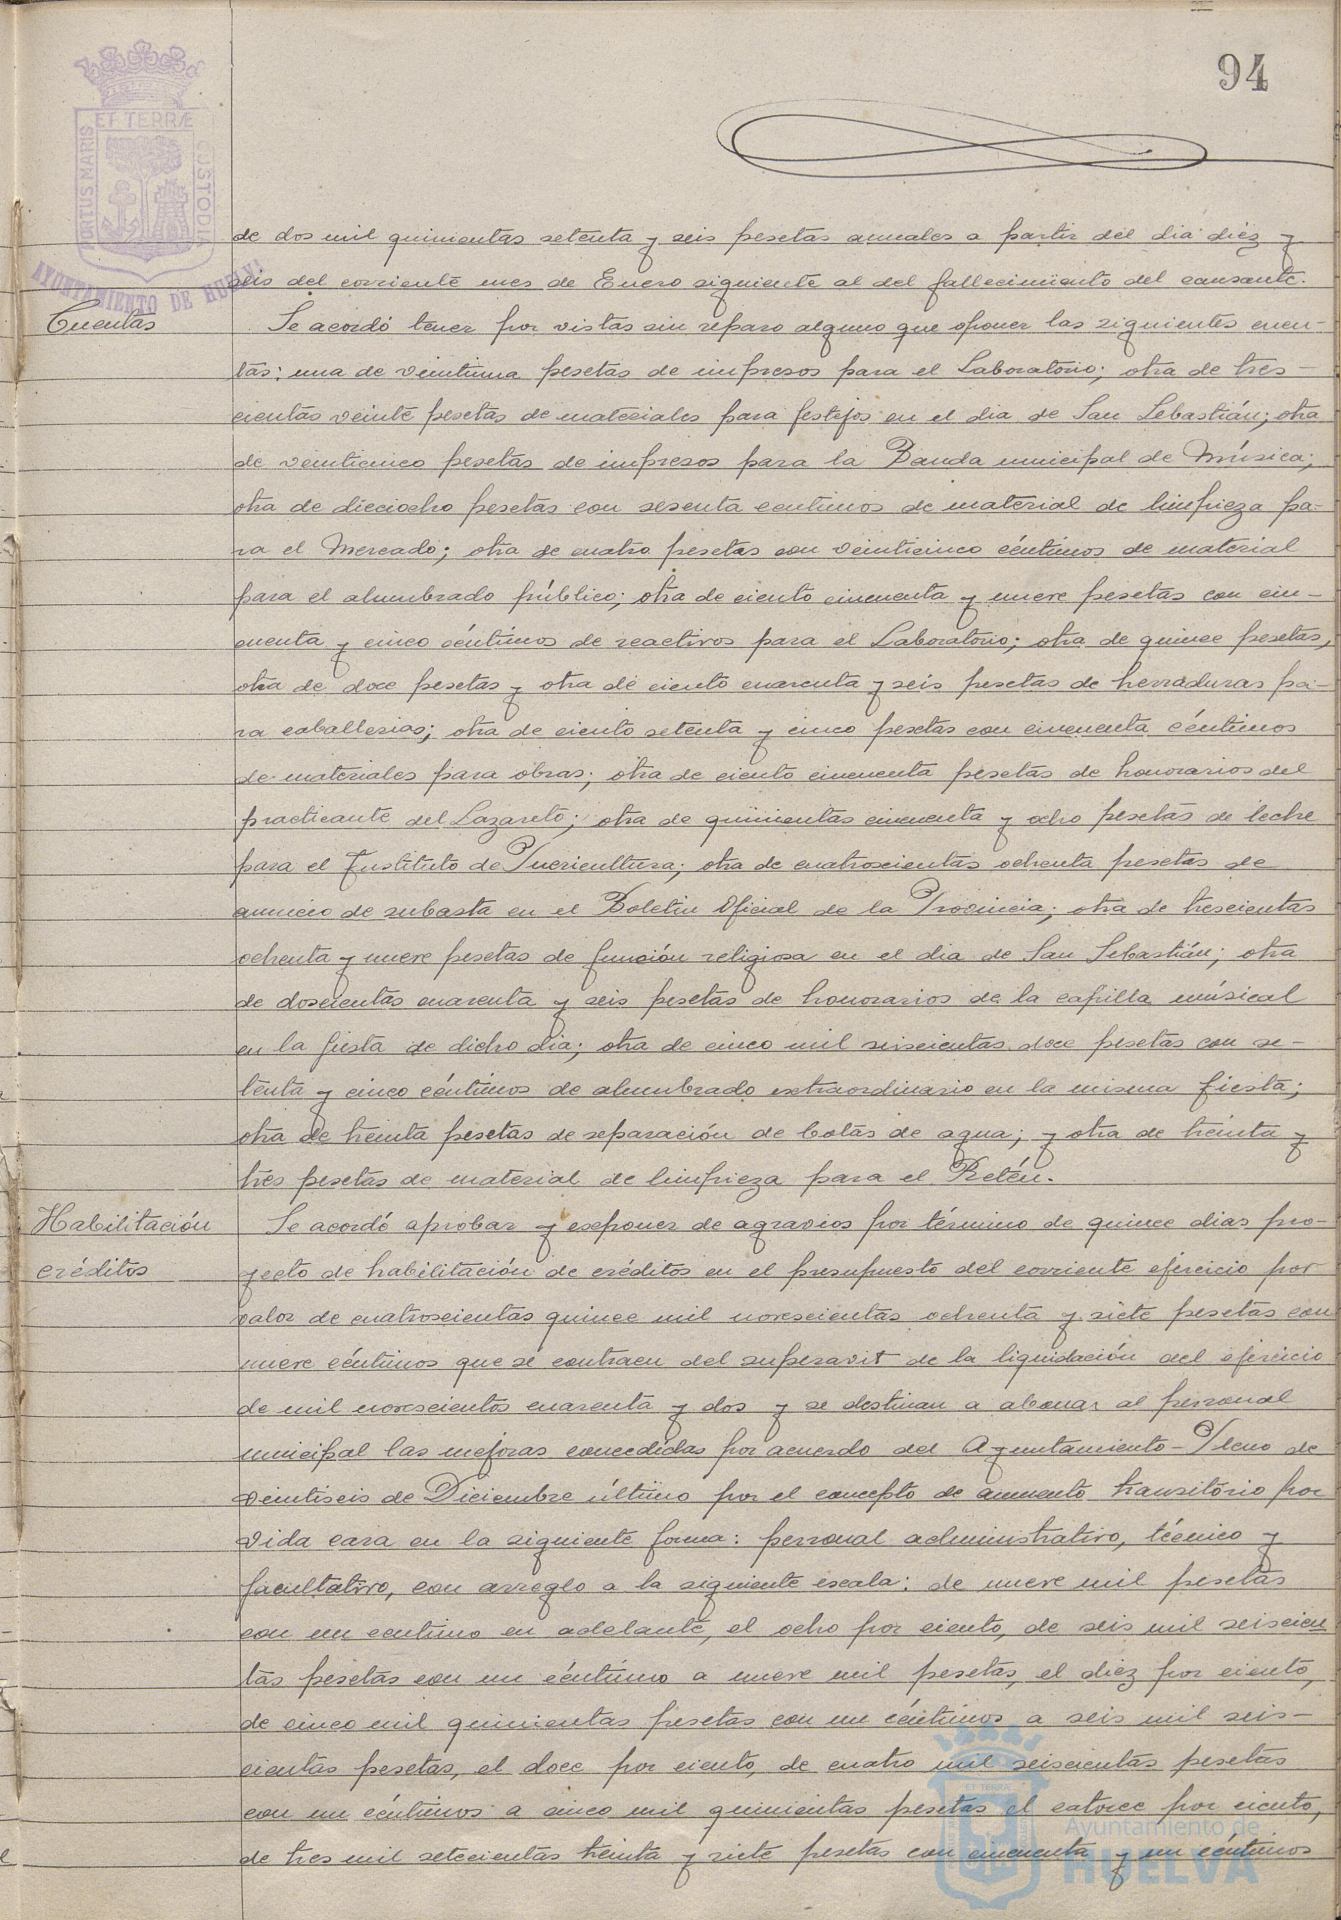 94
PORTUS MARIS ET TERRÆ CUSTODIA
AYUNTAMIENTO DE HUELVA
de dos mil quinientas setenta y seis pesetas anuales a partir del dia diez y
seis del corriente mes de Enero siguiente al del fallecimiento del causante.
Cuentas
Se acordó tener por vistas sin reparo alguno que oponer las siguientes cuen-
tas: una de veintiuna pesetas de impresos para el Laboratorio; otra de tres-
cientas veinte pesetas de materiales para festejos en el dia de San Sebastián; otra
de veinticinco pesetas de impresos para la Banda municipal de Música;
otra de dieciocho pesetas con sesenta centimos de material de limpieza pa-
ra el Mercado; otra de cuatro pesetas con veinticinco céntimos de material
para el alumbrado público; otra de ciento cincuenta y nueve pesetas con cin-
cuenta y cinco céntimos de reactivos para el Laboratorio; otra de quince pesetas,
otra de doce pesetas y otra de ciento cuarenta y seis pesetas de herraduras pa-
ra caballerias; otra de ciento setenta y cinco pesetas con cincuenta céntimos
de materiales para obras; otra de ciento cincuenta pesetas de honorarios del
practicante del Lazareto; otra de quinientas cincuenta y ocho pesetas de leche
para el Instituto de Puericultura; otra de cuatrocientas ochenta pesetas de
anuncio de subasta en el Boletin Oficial de la Provincia; otra de trescientas
ochenta y nueve pesetas de función religiosa en el dia de San Sebastián; otra
de doscientas cuarenta y seis pesetas de honorarios de la capilla músical
en la fiesta de dicho dia; otra de cinco mil seiscientas doce pesetas con se-
tenta y cinco céntimos de alumbrado extraordinario en la misma fiesta;
otra de treinta pesetas de reparación de botas de agua; y otra de treinta y
tres pesetas de material de limpieza para el Retén.
Habilitación
créditos
Se acordó aprobar y exponer de agravios por término de quince dias pro-
yecto de habilitación de créditos en el presupuesto del corriente ejercicio por
valor de cuatrocientas quince mil novecientas ochenta y siete pesetas con
nueve céntimos que se contraen del superavit de la liquidación del ejercicio
de mil novecientos cuarenta y dos y se destinan a abonar al personal
municipal las mejoras concedidas por acuerdo del Ayuntamiento-Pleno de
veintiseis de Diciembre último por el concepto de aumento transitorio por
vida cara en la siguiente forma: personal administrativo, técnico y
facultativo, con arreglo a la siguiente escala: de nueve mil pesetas
con un centimo en adelante, el ocho por ciento, de seis mil seiscien
tas pesetas con un céntimo a nueve mil pesetas, el diez por ciento,
de cinco mil quinientas pesetas con un céntimos a seis mil seis-
cientas pesetas, el doce por ciento, de cuatro mil seiscientas pesetas
con un céntimos a cinco mil quinientas pesetas el catorce por ciento,
de tres mil setecientas treinta y siete pesetas con cincuenta y un céntimos
Ayuntamiento de
HUELVA